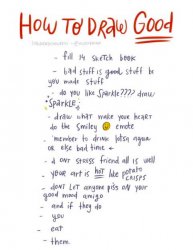 HOW TO DRAW GOOD
- fill 14 sketch book
- bad stuff is good stuff bc
you made stuff
- do you like sparkle???? draw
sparkle
- draw what make your heart
do the smiley 🙂 emote
- member to drink lotsa agua
or else bad time
- d ont stress friend all is well
- your art is hot like potato
crisps
- dont let anyone piss on your
good mood amigo
- and if they do
- you
- eat
- them.